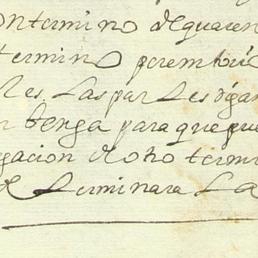 ontermino de quaren
termino peremtu
les Las partes digan
benga para que pue
gacion de otro termi
determinara La